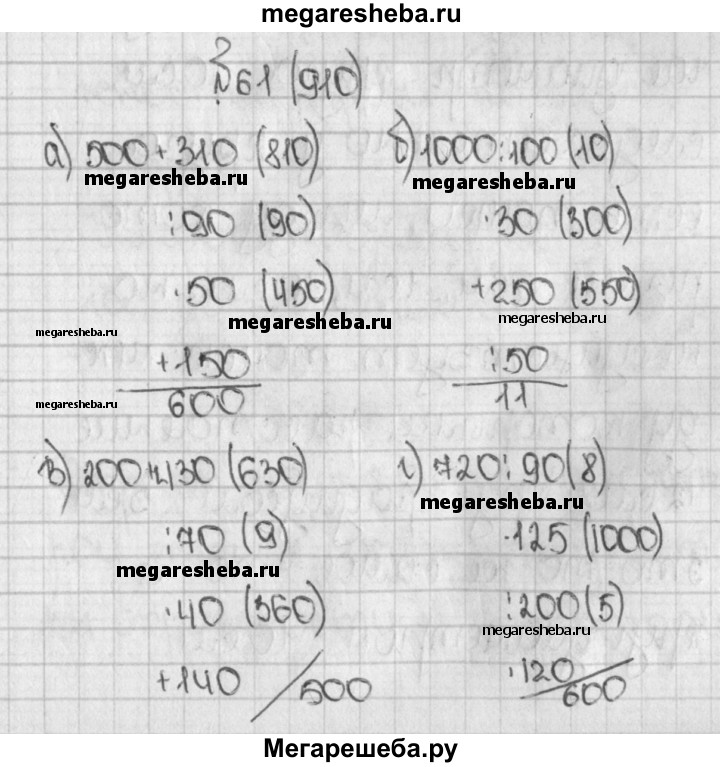 megaresheba.ru
№61 (910)
а) 500+310 (810) б) 1000:100 (10)
megaresheba.ru megaresheba.ru
:90 (90) ·30 (300)
·50 (450) +250 (550)
megaresheba.ru megaresheba.ru megaresheba.ru
+150 :50
600 11
megaresheba.ru
в) 200 430 (630) г) 720:90(8)
megaresheba.ru
:70 (9) ·125 (1000)
megaresheba.ru
·40 (360) :200(5)
megaresheba.ru
+140 / 500 ·120
600
Мегарешеба.ру